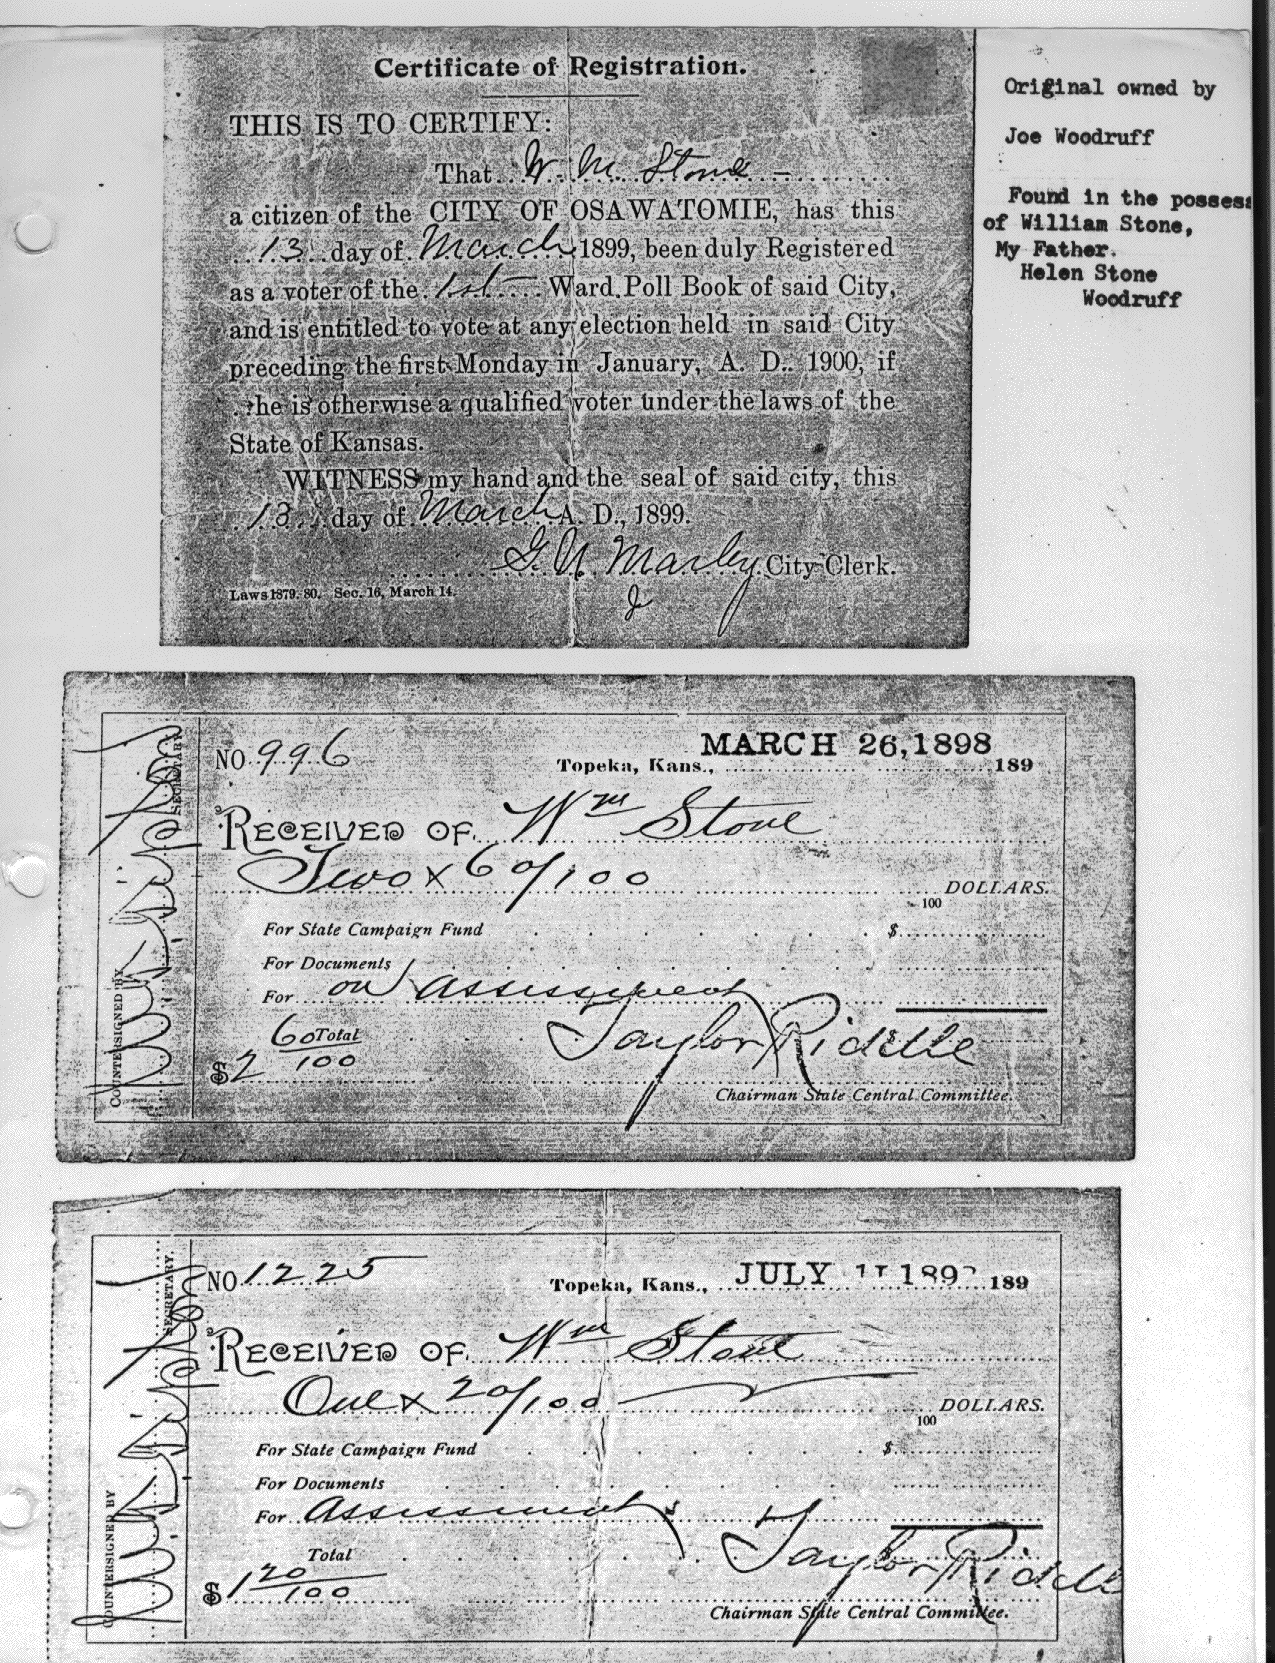 Certificate of Registration.
THIS IS TO CERTIFY:
That W. M. Stone
a citizen of the CITY OF OSAWATOMIE, has this
13 day of March 1899, been duly Registered
as a voter of the 1st Ward Poll Book of said City,
and is entitled to vote at any election held in said City
preceding the first Monday in January, A. D. 1900, if
he is otherwise a qualified voter under the laws of the
State of Kansas.
WITNESS my hand and the seal of said city, this
13 day of March A. D., 1899.
City Clerk.
Laws 1879-80. Sec. 16, March 14.
Original owned by
Joe Woodruff
Found in the possess
of William Stone,
My Father.
Helen Stone
Woodruff
NO 996
MARCH 26, 1898
Topeka, Kans., 189
RECEIVED OF Wm Stone
Two x 60/100 DOLLARS.
100
For State Campaign Fund $
For Documents
For on Assessment
60 Total
$ 2 100
Taylor Riddle
Chairman State Central Committee.
COUNTERSIGNED BY
SECRETARY
NO 1225
Topeka, Kans., JULY 11 189 189
RECEIVED OF Wm Stone
One x 20/100 DOLLARS.
100
For State Campaign Fund $
For Documents
For Assessment
Total
$ 1 20/100
Taylor Riddle
Chairman State Central Committee.
COUNTERSIGNED BY
SECRETARY.